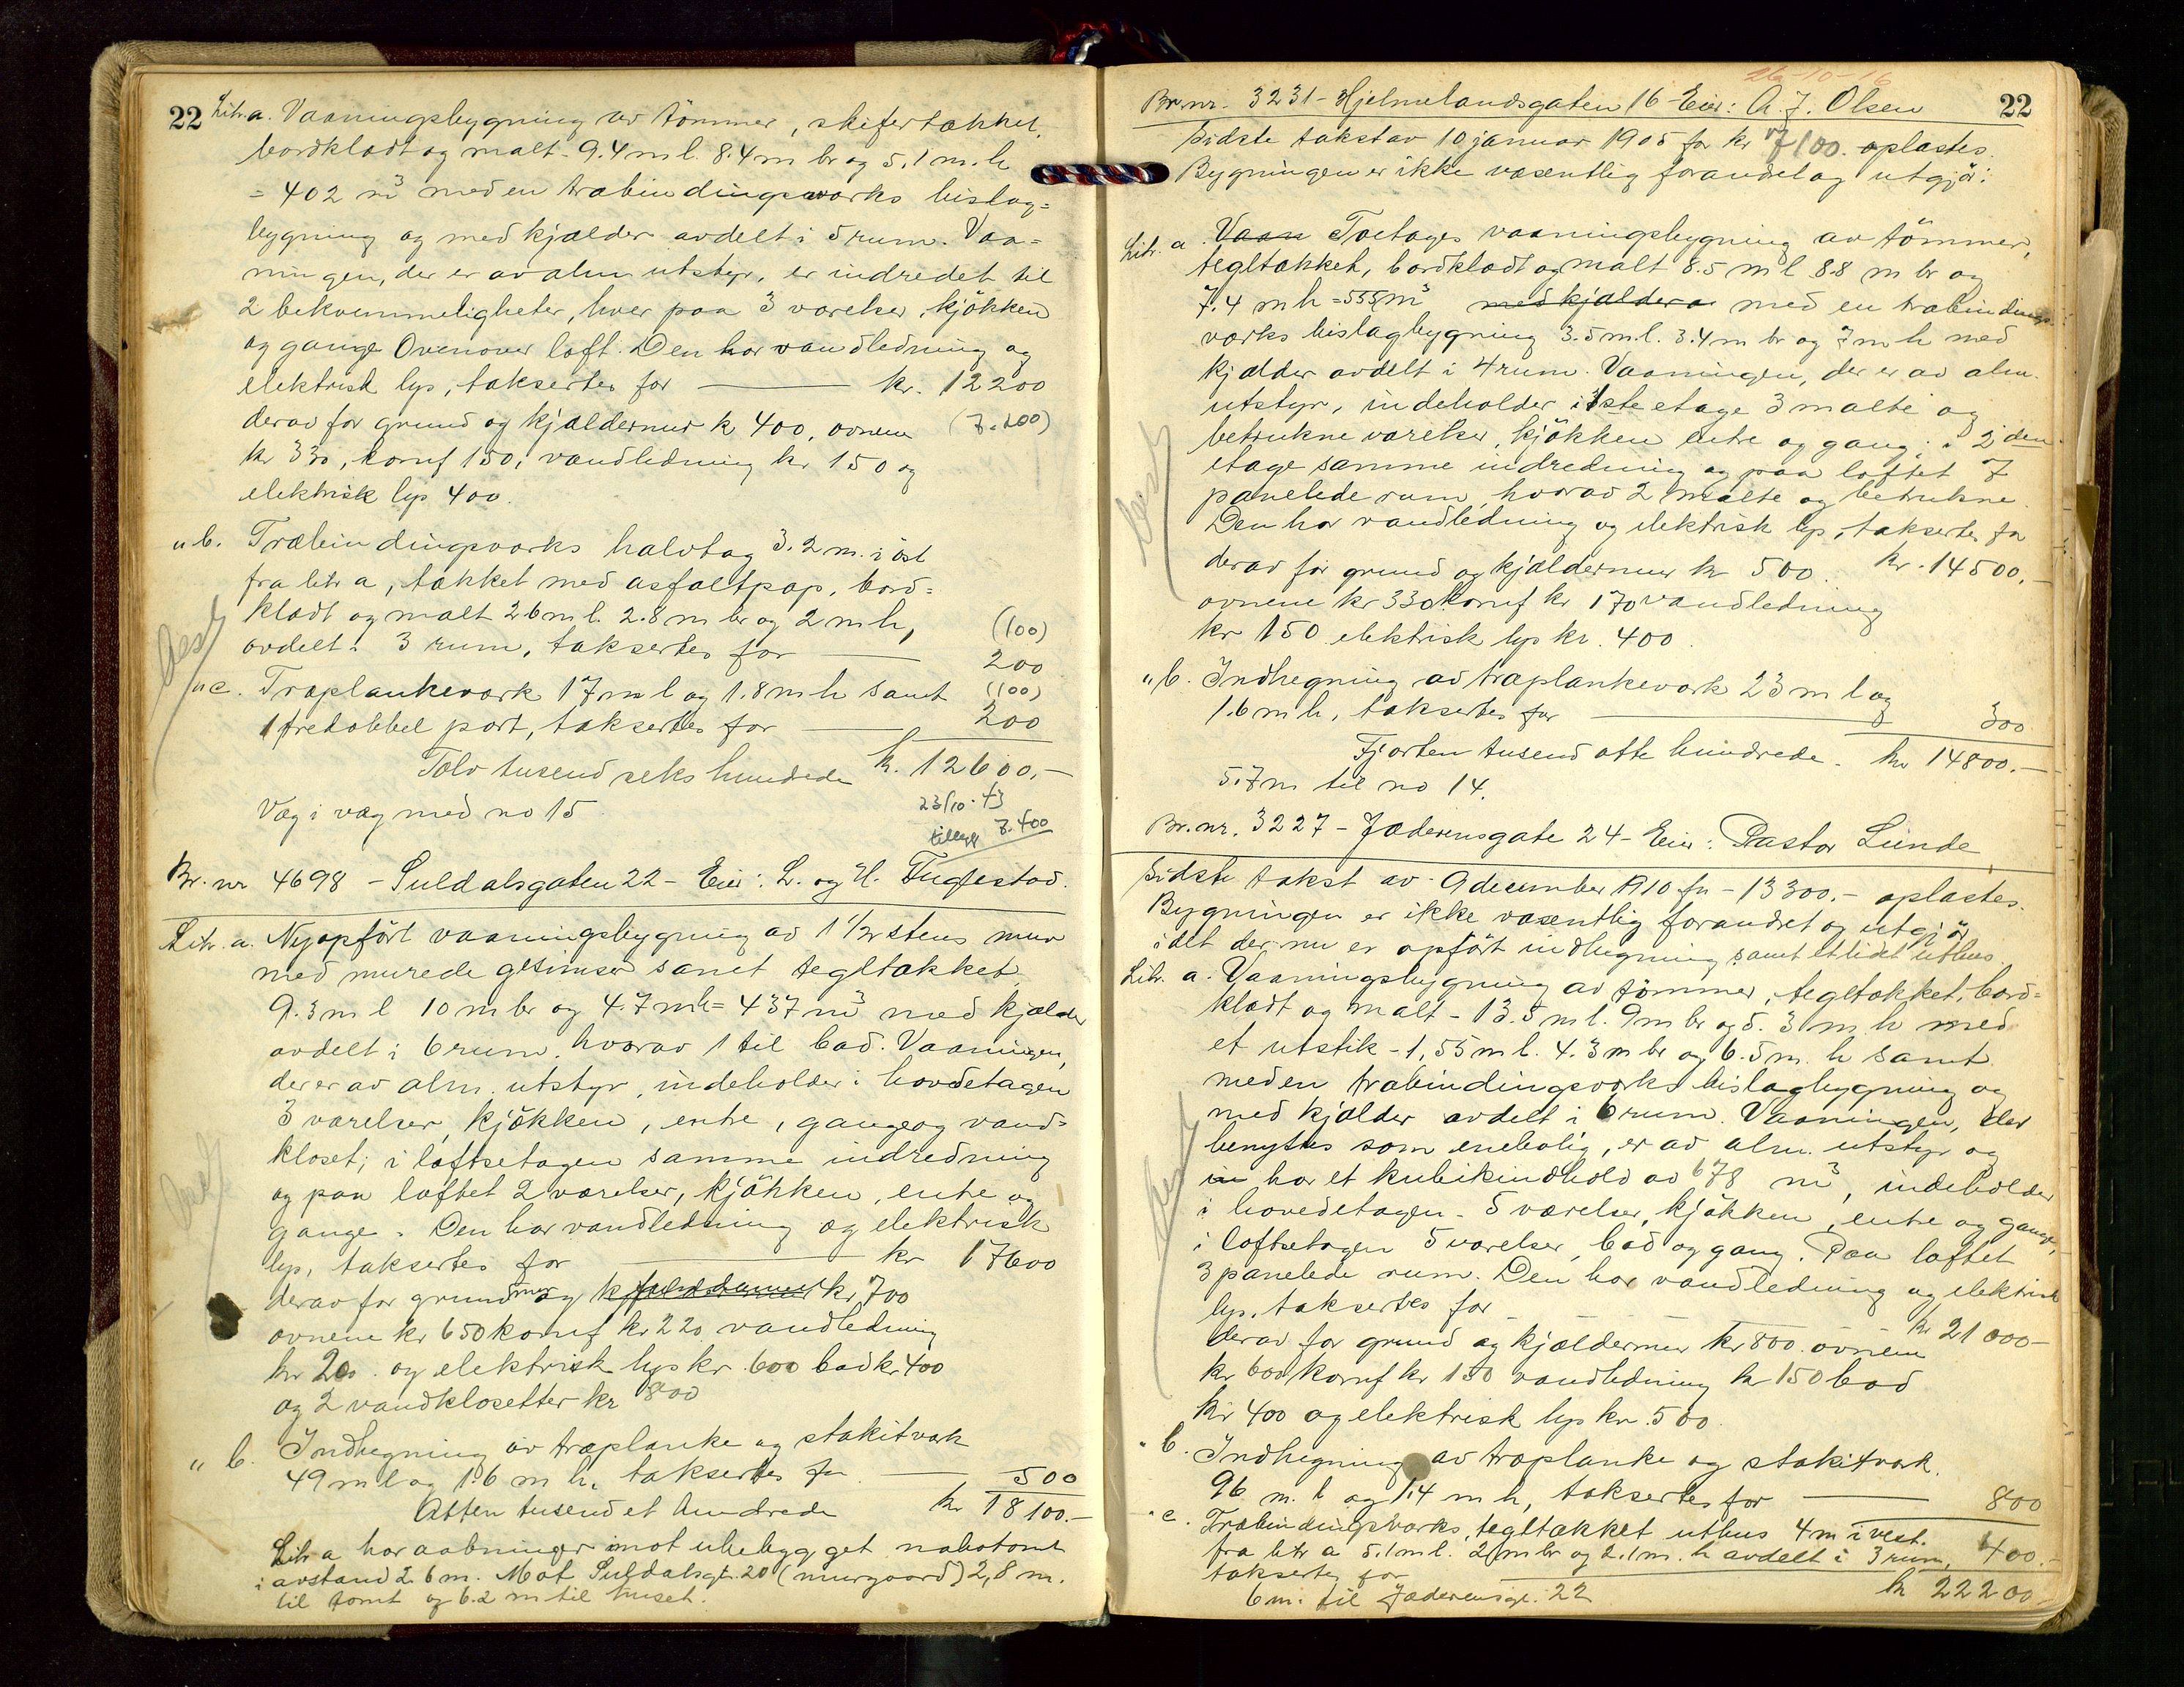 22 Litr. a. Vaaningsbygning av tömmer, skifertækket,
bordklædt og malt - 9.4 m l. 8.4 m br og 5.1 m. h
= 402 m³ med en træbindingsværks bislag=
bygning og med kjælder avdelt i 5 rum. Vaa=
ningen, der er av alm utstyr, er indredet til
2 bekvemmeligheter, hver paa 3 værelser, kjökken
og gange Ovenover loft. Den har vandledning og
elektrisk lys, taksertes for — kr. 12200
derav for grund og kjældermur kr 400, ovnene (7.200)
kr 330, komf 150, vandledning kr 150 og
elektrisk lys 400.
" b. Træbindingsværks halvtag 3.2 m. i öst
fra litr a, tækket med asfaltpap, bord=
klædt og malt 26 m l. 2.8 m br og 2 m h, (100)
avdelt i 3 rum, taksertes for — 200
" c. Træplankeværk 17 m l og 1.8 m h samt (100)
1 tredobbel port, taksertes for — 200
Tolv tusend seks hundrede kr. 12600.-
Væg i væg med no 15 23/10-43
tillegg 7.400
Br. nr 4698 - Suldalsgaten 22 - Eier: L. og H. Fuglestad.
Litr. a. Nyopfört vaaningsbygning av 1 1/2 stens mur
med murede gesimser samt tegltækket
9.3 m l 10 m br og 4.7 m h = 437 m³ med kjælder
avdelt i 6 rum, hvorav 1 til bad. Vaaningen,
der er av alm. utstyr, indeholder i hovedetagen
3 værelser, kjökken, entre, gange og vand=
kloset; i loftsetagen samme indredning
og paa loftet 2 værelser, kjökken, entre og
gange. Den har vandledning og elektrisk
lys, taksertes for — kr 17600
derav for grundmur og kr 700
ovnene kr 650 komf kr 220 vandledning
kr 200 og elektrisk lys kr. 600 bad kr 400
og 2 vandklosetter kr 800
" b. Indhegning av træplanke og stakitværk
49 m l og 1.6 m h, taksertes for — 500
Atten tusend et hundrede kr 18100.-
Litr a har aabninger imot ubebygget nabotomt
i avstand 2.6 m. Mot Suldalsgt. 20 (murgaard) 2,8 m.
til tomt og 6.2 m til huset.
26-10-16
Br. nr. 3231 - Hjelmelandsgaten 16 - Eier: A. J. Olsen 22
Sidste takst av 10 januar 1905 for kr 7100. oplæstes.
Bygningen er ikke væsentlig forandret og utgjör:
Litr. a. Vaan Toetages vaaningsbygning av tömmer,
tegltækket, bordklædt og malt 8.5 m l 8.8 m br og
7.4 m h = 555 m³ med kjælder a med en træbindings
værks bislagbygning 3.5 m l. 3.4 m br og 7 m h med
kjælder avdelt i 4 rum. Vaaningen, der er av alm.
utstyr, indeholder i 1ste etage 3 malte og
betrukne værelser, kjökken entre og gang; i 2den
etage samme indredning og paa loftet 7
panelede rum, hvorav 2 malte og betrukne
Den har vandledning og elektrisk lys, taksertes for
derav for grund og kjældermur kr 500. kr. 14500.-
ovnene kr 330 komf kr 170 vandledning
kr 150 elektrisk lys kr. 400.
" b. Indhegning av træplankeværk 23 m l og
1.6 m h, taksertes for — 300
Fjorten tusend otte hundrede. kr 14800.-
5.7 m til no 14.
Br. nr. 3227 - Jæderensgate 24 - Eier: Pastor Lunde
Sidste takst av 9 december 1910 for - 13300.- oplæstes.
Bygningen er ikke væsentlig forandret og utgjör
idet der nu er opfört indhegning samt et lidet uthus.
Litr. a. Vaaningsbygning av tömmer, tegltækket, bord=
klædt og malt - 13.5 m l. 9 m br og 5.3 m h med
et utstik - 1,55 m l. 4.3 m br og 6.5 m. h samt
med en træbindingsværks bislagbygning og
med kjælder avdelt i 6 rum. Vaaningen, der
benyttes som enebolig, er av alm. utstyr og
in har et kubikindhold av 678 m³, indeholder
i hovedetagen - 5 værelser, kjökken, entre og gange,
i loftsetagen 5 værelser, bad og gang. Paa loftet
3 panelede rum. Den har vandledning og elektrisk
lys, taksertes for kr 21000-
derav for grund og kjældermur kr 800. ovnene
kr 600 komf kr 150 vandledning kr 150 bad
kr 400 og elektrisk lys kr. 500.
" b. Indhegning av træplanke og stakitværk.
96 m. l og 1.4 m h, taksertes for — 800
" c. Træbindingsværks, tegltækket uthus 4 m i vest.
fra litr a 5.1 m l. 2 m br og 2.1 m. h avdelt i 3 rum, 400.-
taksertes for
6 m. til Jæderensgt. 22 kr 22200